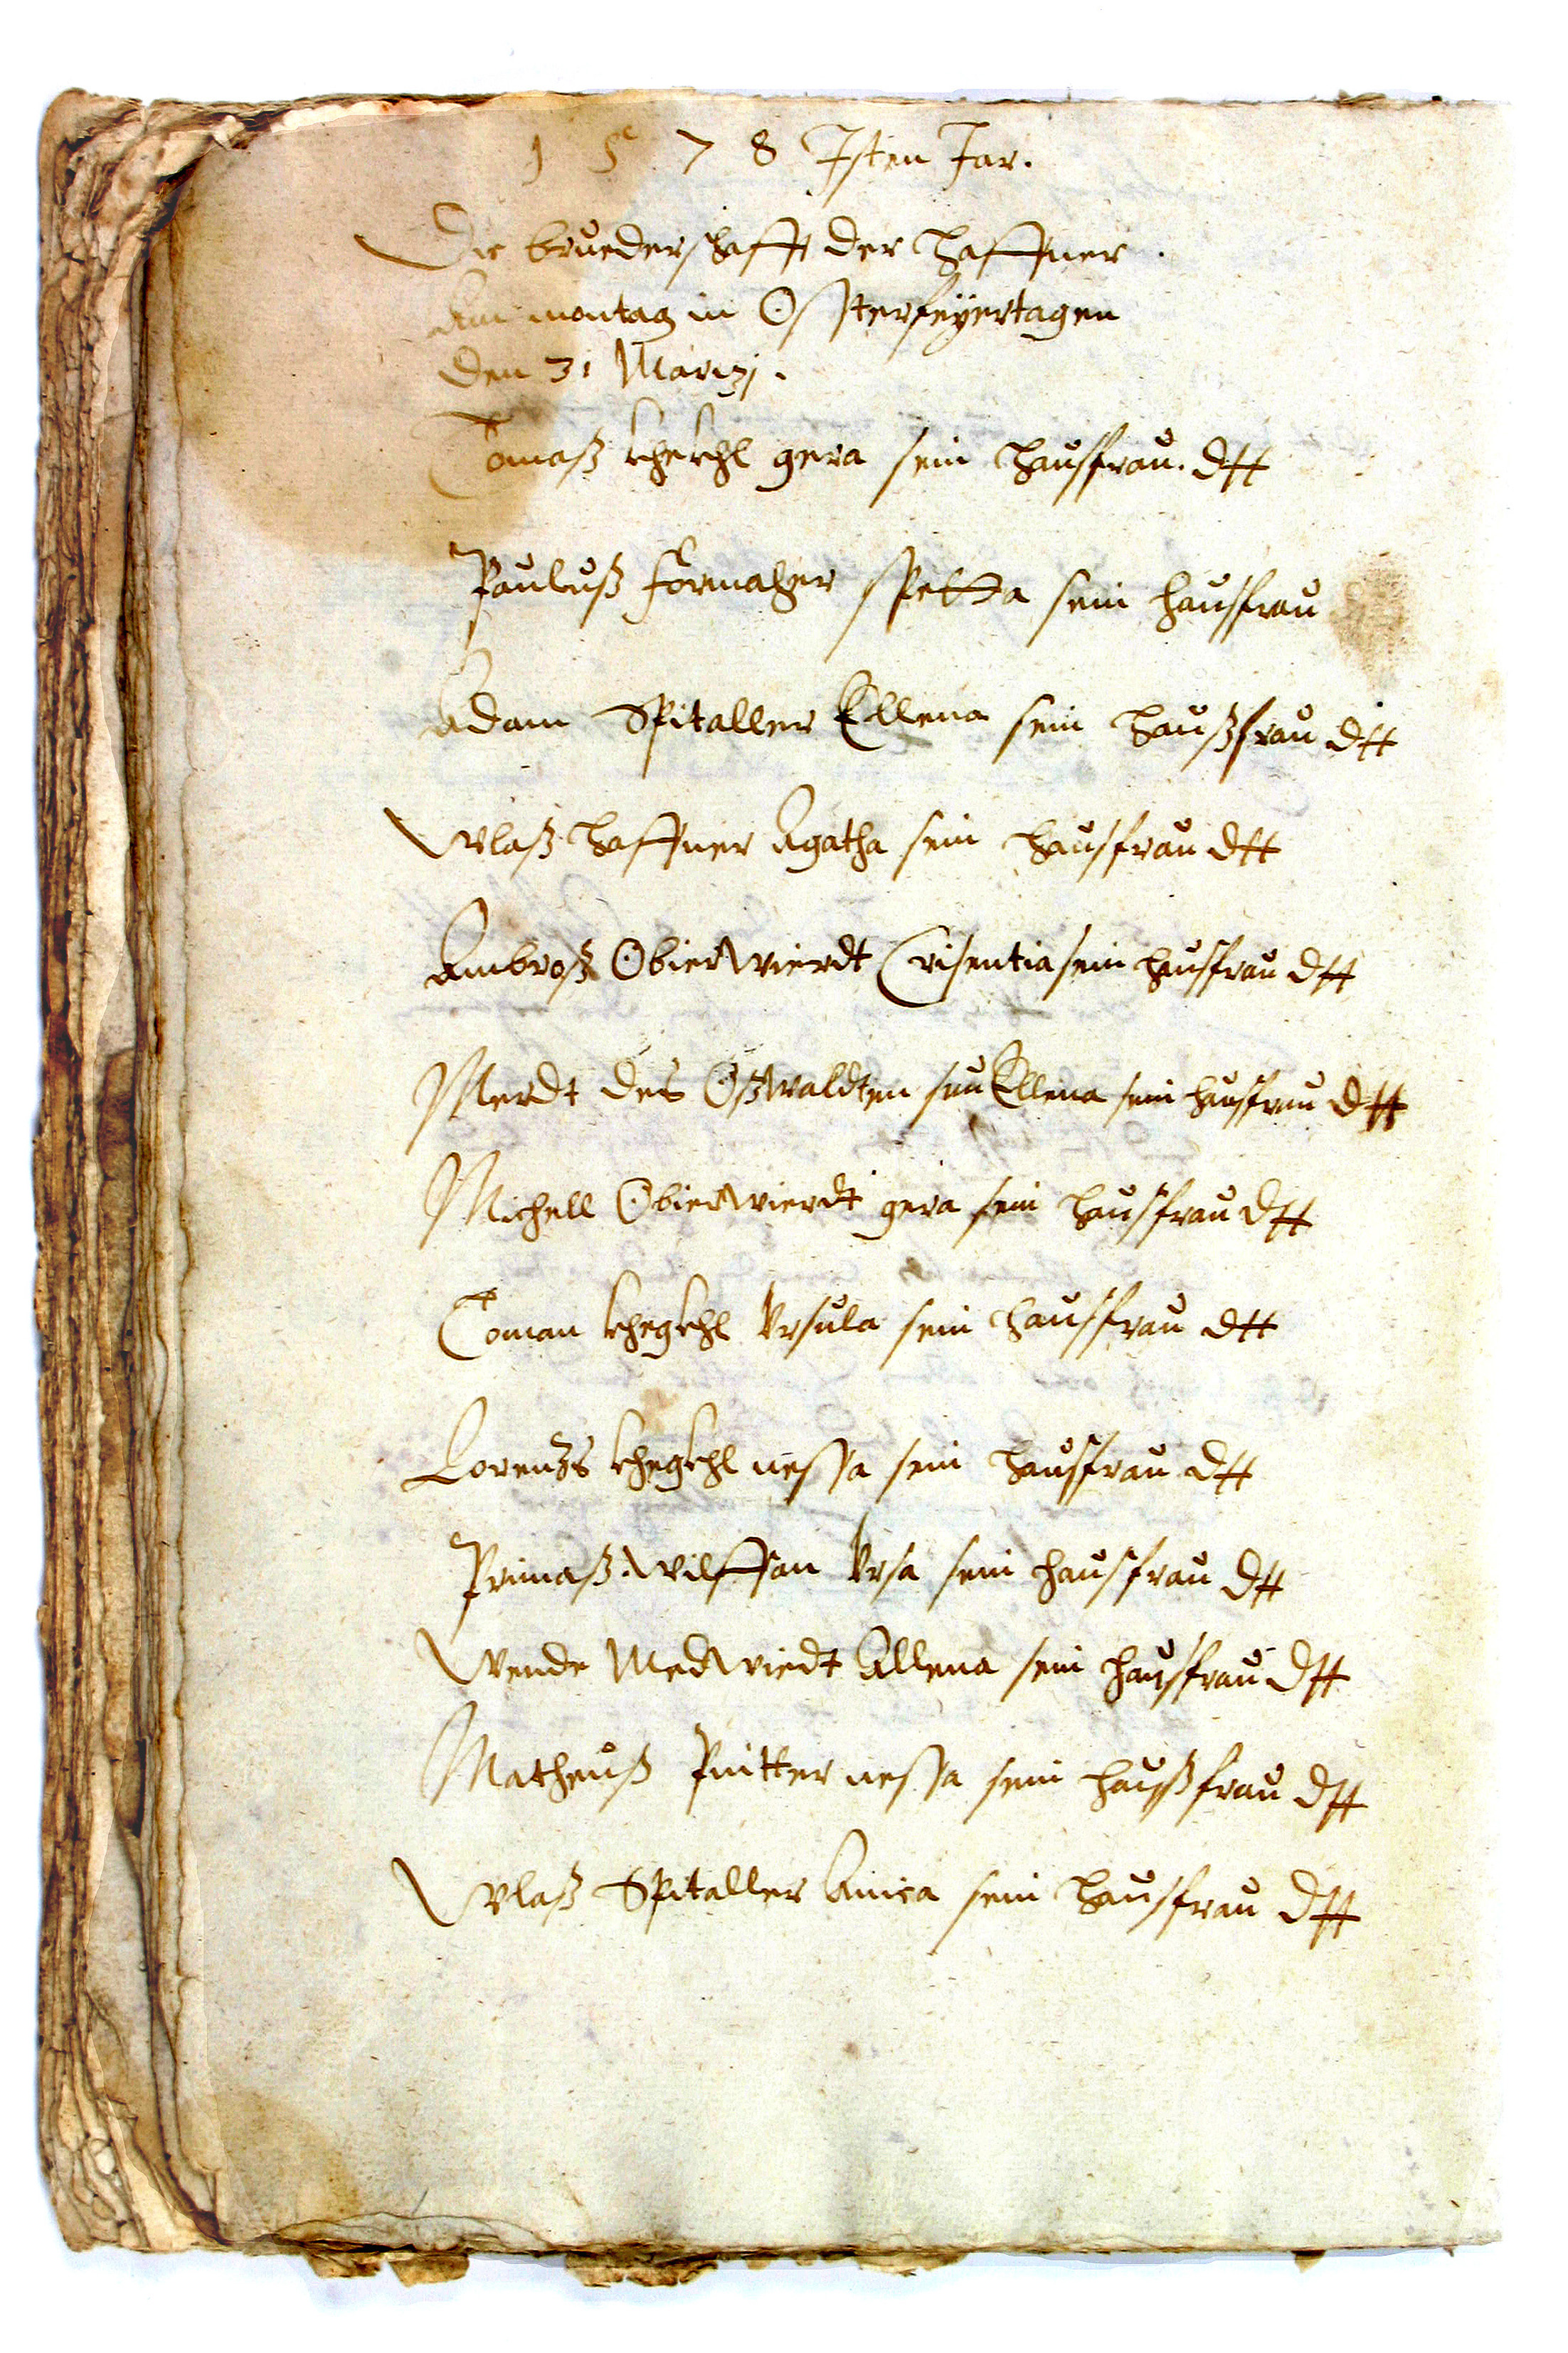 1 5 7 8 Isten Jar.
Die bruederschafft der Haffner.
Am montag in Ossterfeyertagen
den 31 Marczj.
Tomaß khekhl gera sein hausfrau. dtt
Pauluß formacher spella sein hausfrau
Adam Spitaller Ellena sein haußfrau dtt
Wlaß Haffner Agatha sein hausfrau dtt
Ambroß Obierwierdt Crisentia sein hausfrau dtt
Merdt des Oßwaldten sun Ellena sein hausfrau dtt
Michell Obierwierdt gera sein hausfrau dtt
Toman khegkhl Vrsula sein hausfrau dtt
Lorenzs khegkhl nessa sein hausfrau dtt
Primaß Wilffan Vrsa sein hausfrau dtt
Wende Medwiedt Allena sein hausfrau dtt
Matheuß Pinter nessa sein haußfrau dtt
Wlaß Spitaller Anica sein hausfrau dtt